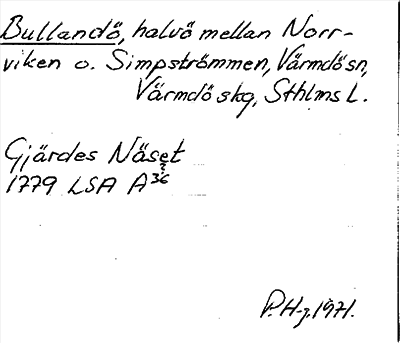 Bullandö, halvö mellan Norr-
viken o. Simpströmmen, Värmdö sn,
Värmdö skg, Sthlms L.
Gjärdes Näset
1779 LSA A 36
P.H-g. 1971.